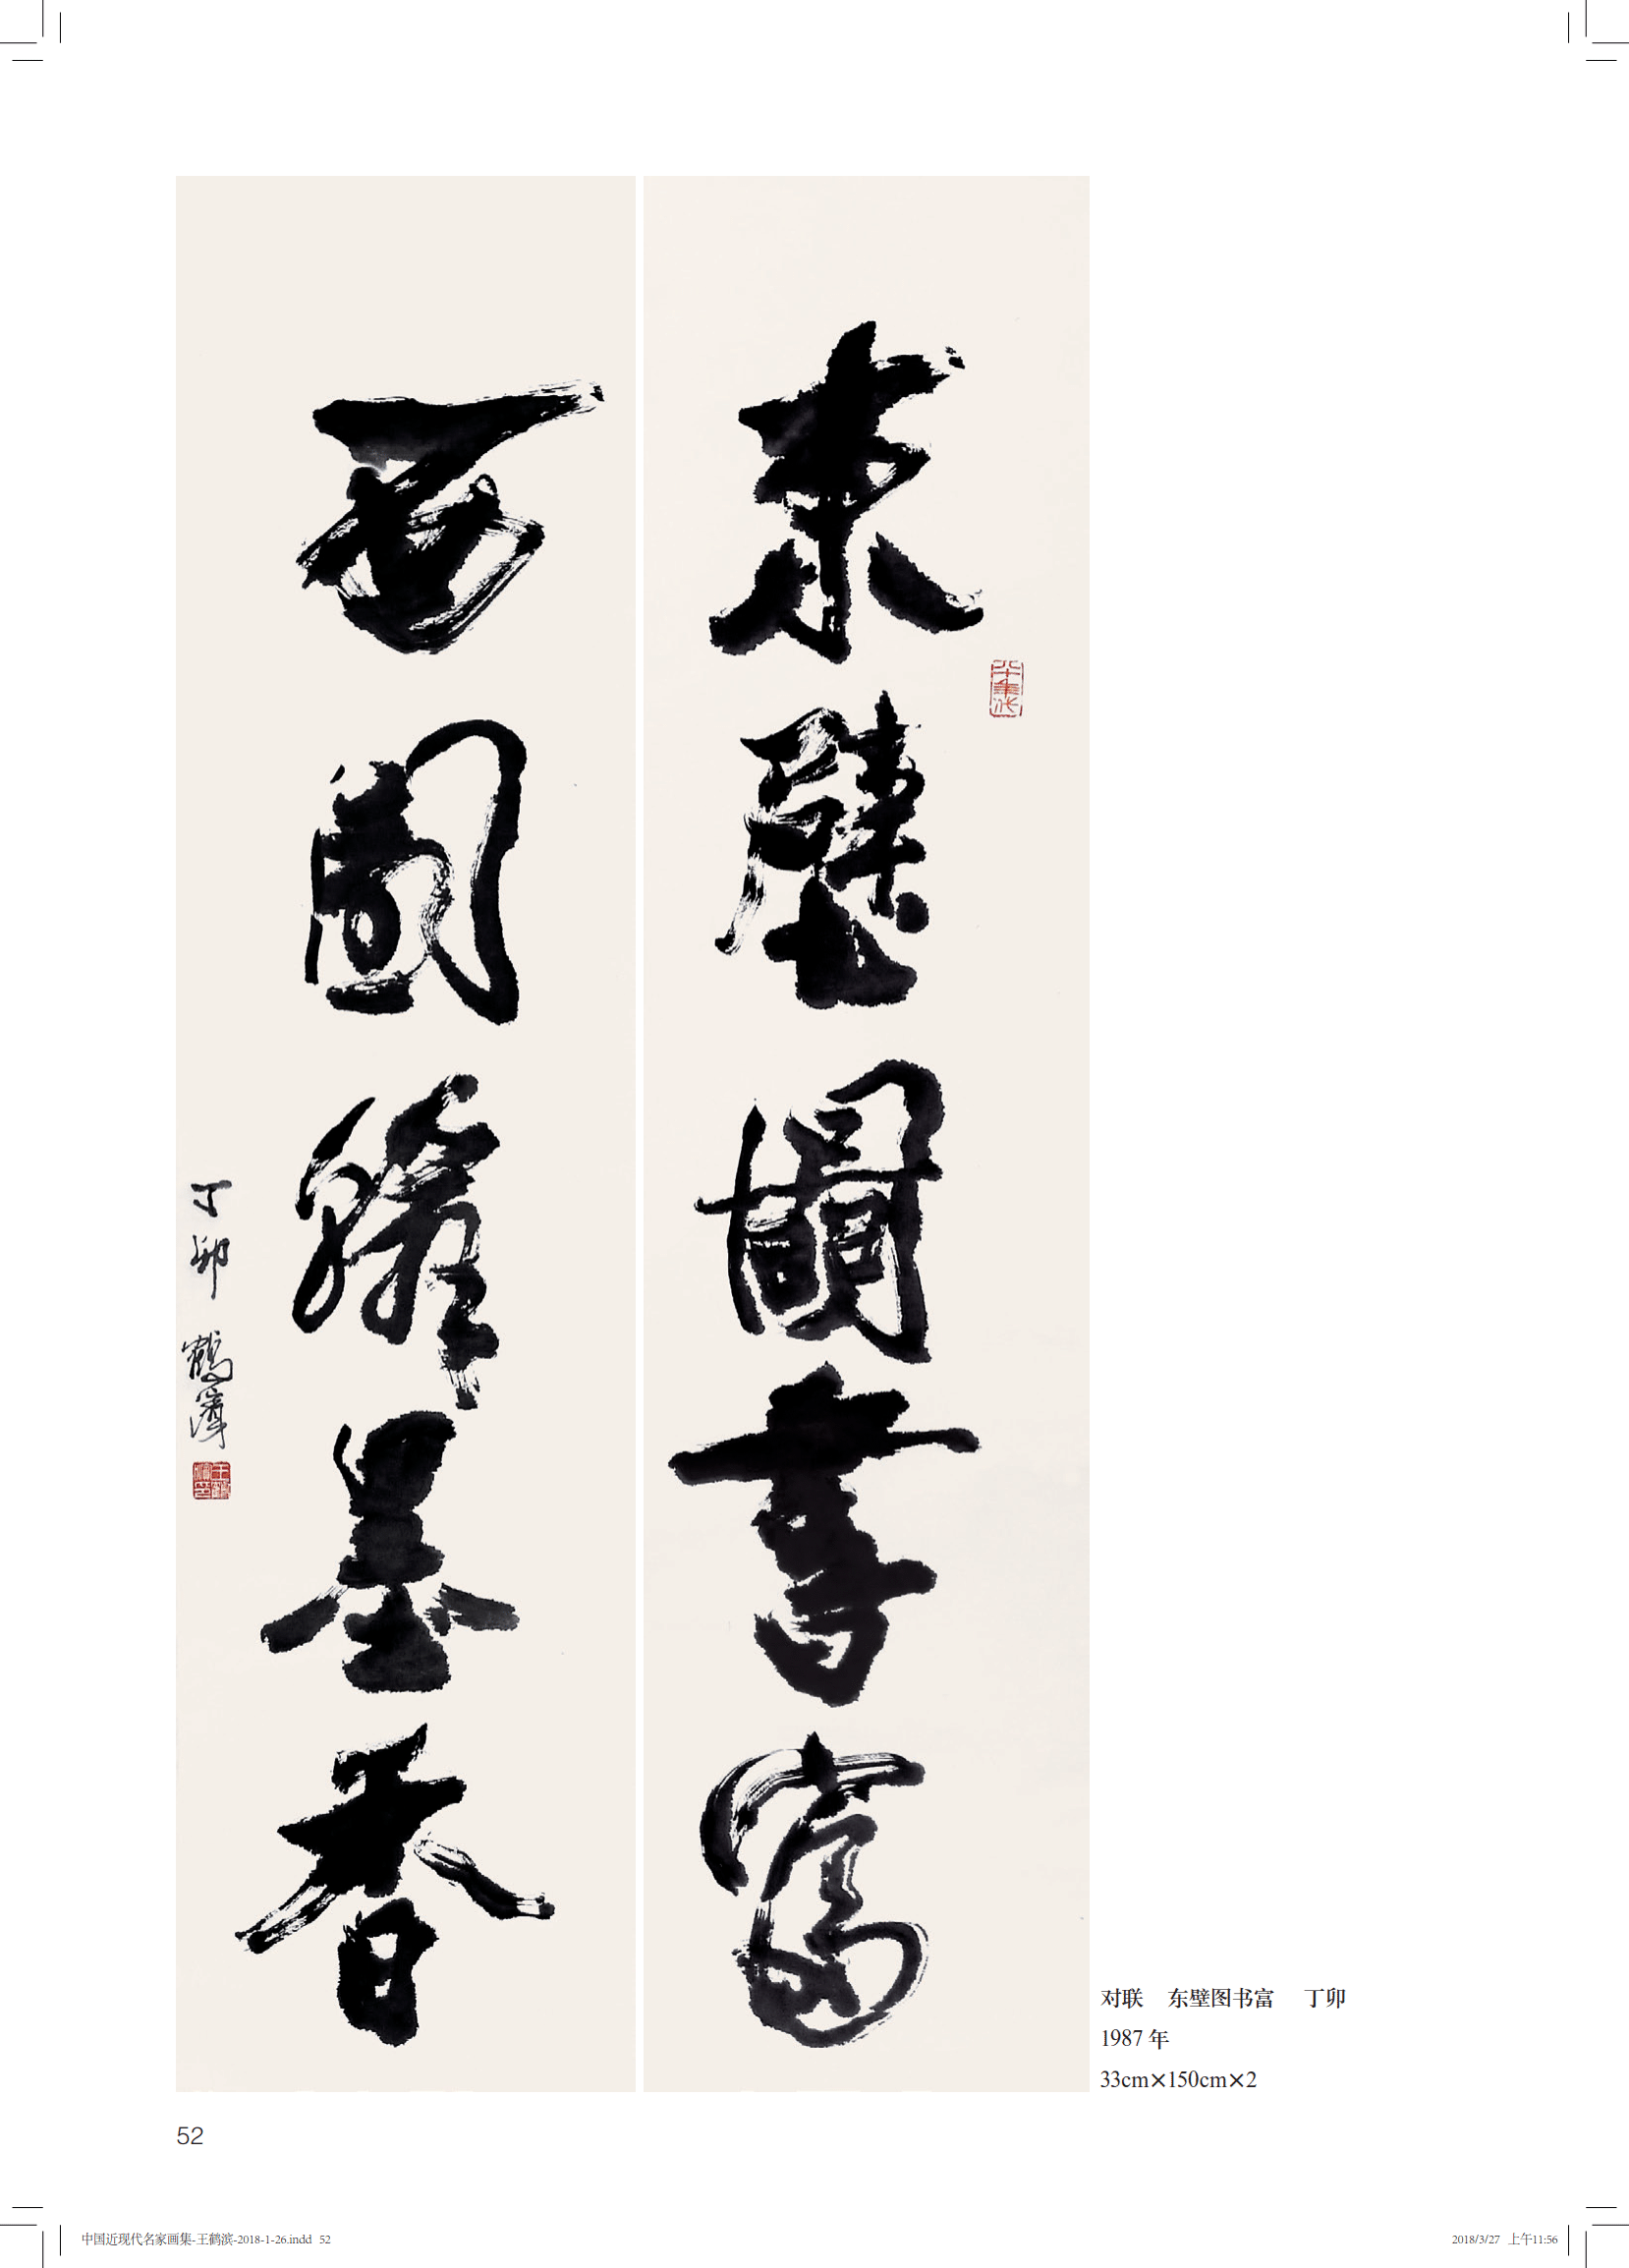 東壁圖書富
西園翰墨香
丁卯 鶴濱
王鶴濱印
对联 东壁图书富 丁卯
1987 年
33cm×150cm×2
52
中国近现代名家画集-王鹤滨-2018-1-26.indd 52
2018/3/27 上午11:56